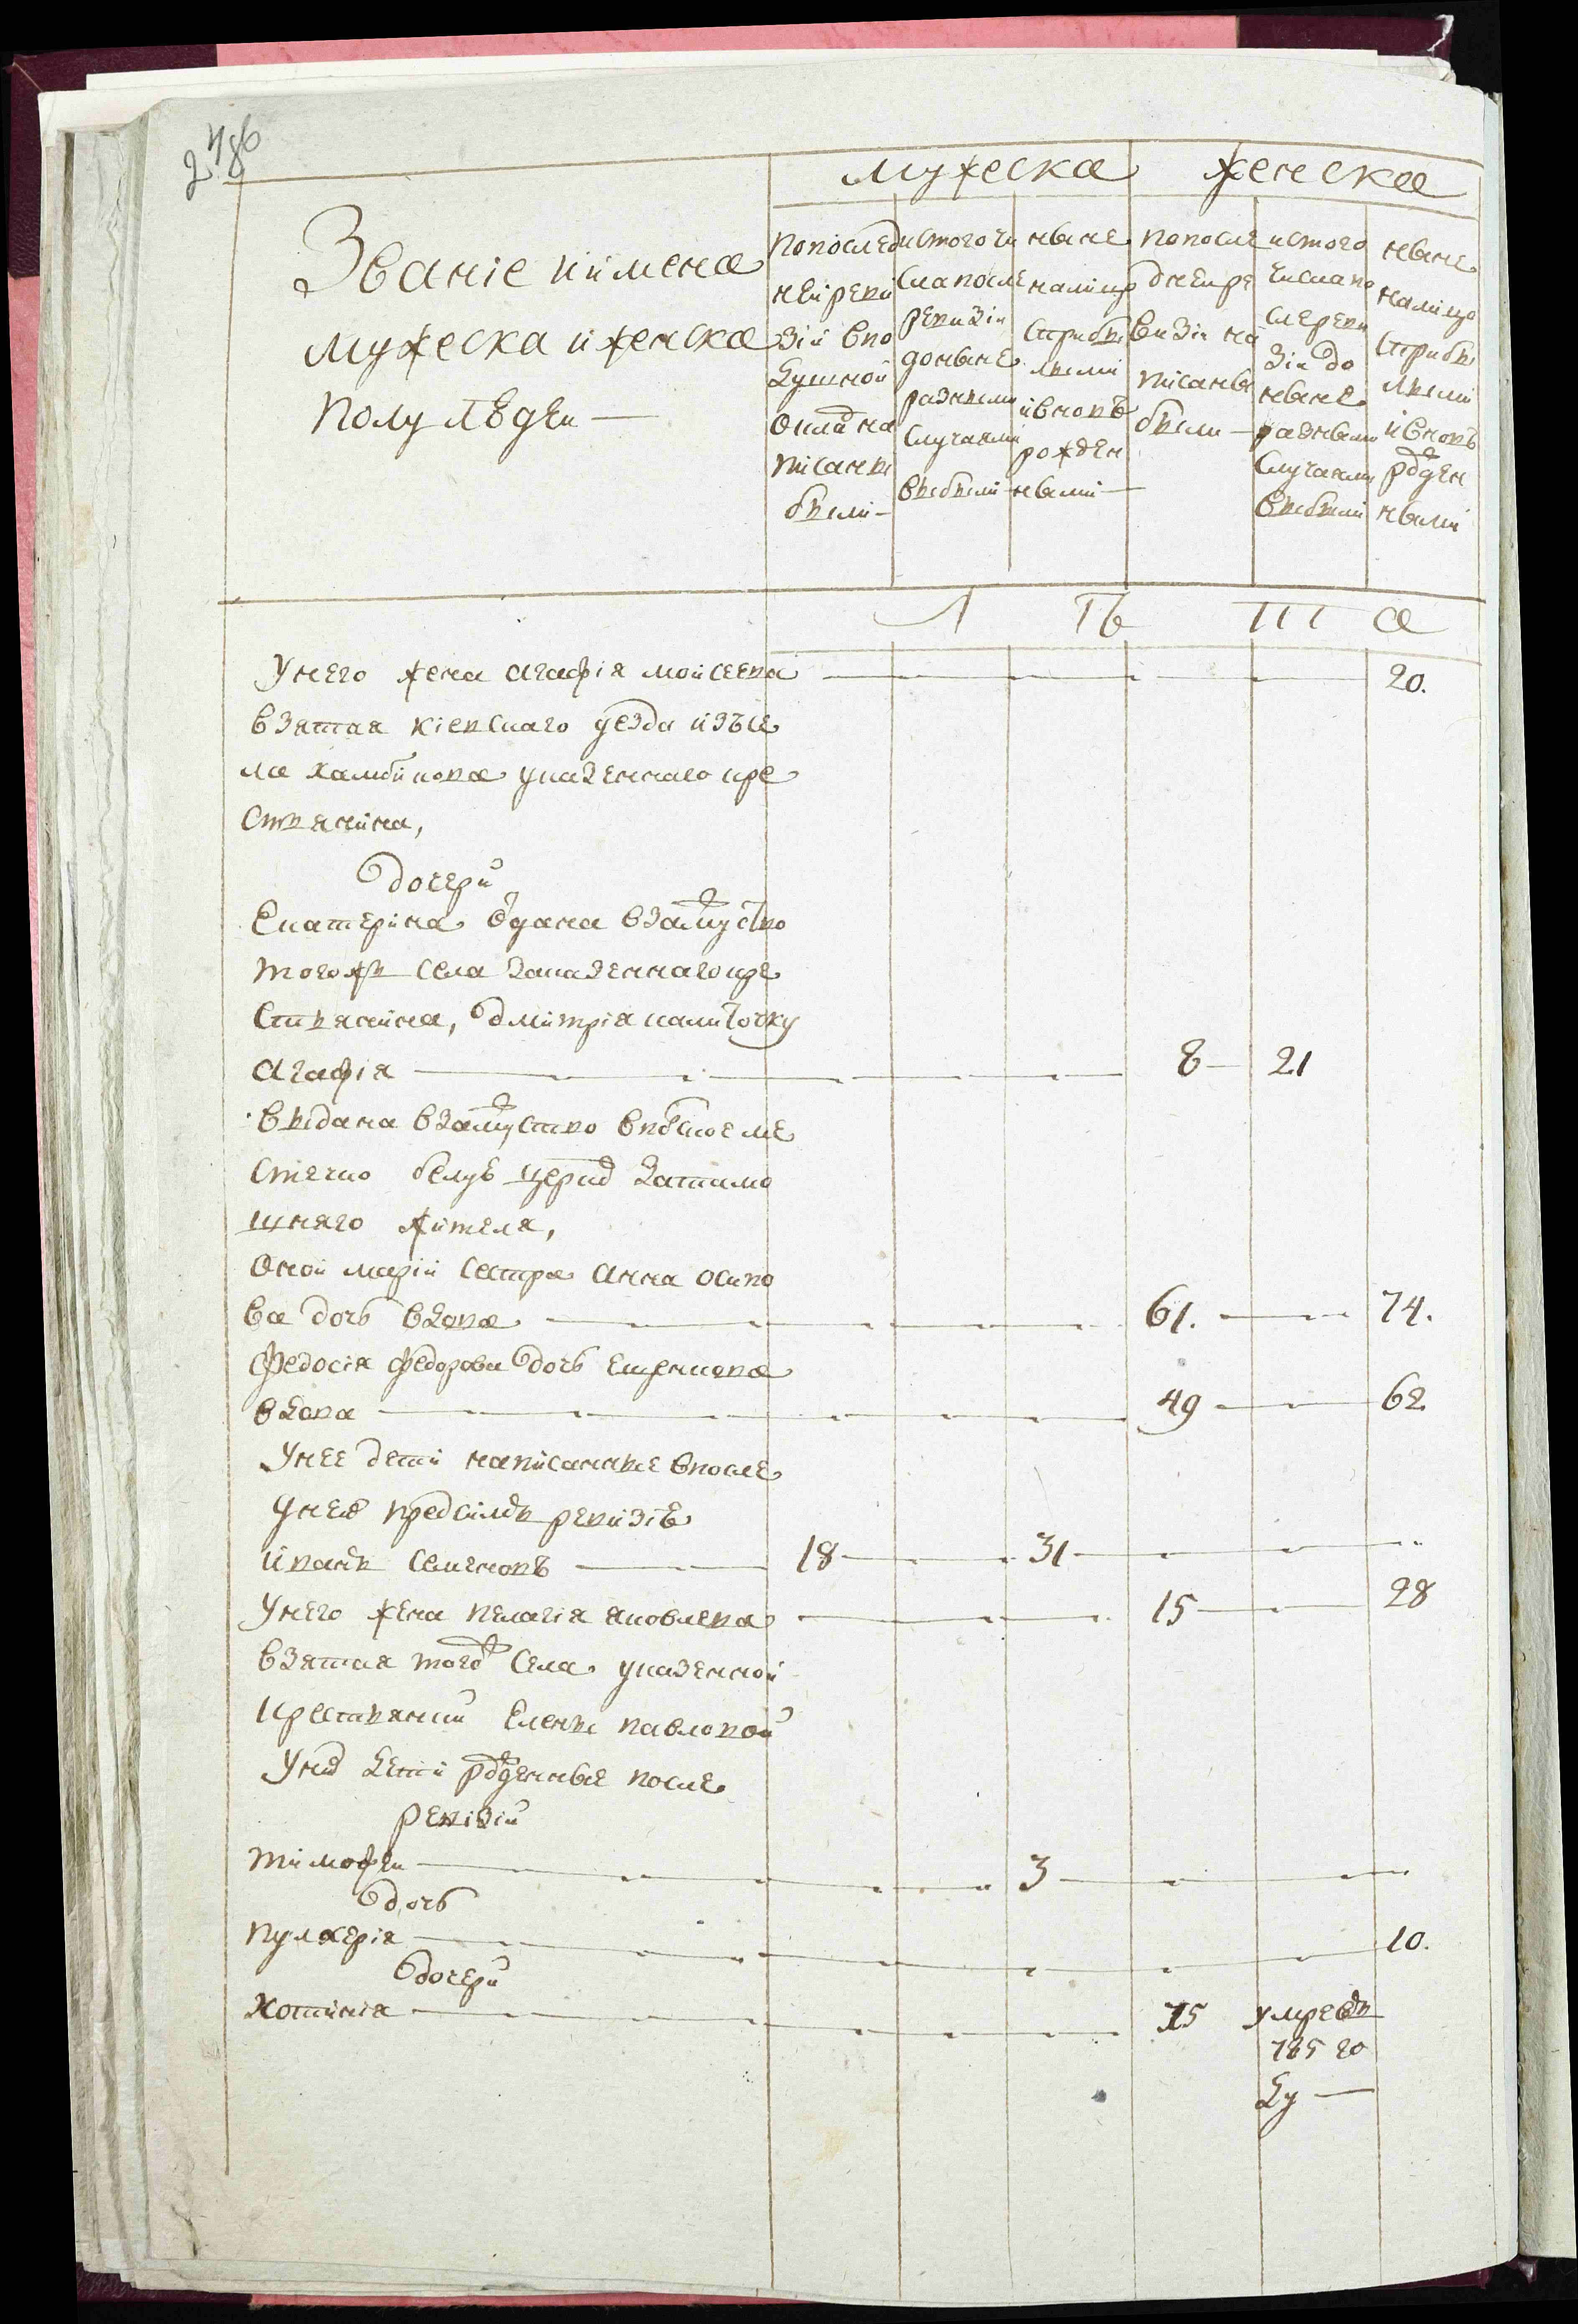 286
мужеска женска
Званіе и имена
мужеска и женска
полу людеи —
по послед
неи реви
зіи в по
душной
оклад на
писаны
были —
и с того чи
сла после
ревизіи
до ныне
разными
случаями
выбыли —
ныне
на лицо
с прибы
лыми
и вновь
рожден
ными —
по после
днеи ре
визіи на
писаны
были —
и с того
числа по
сле реви
зіи до
ныне
разными
случаями
выбыли
ныне
на лицо
с прибы
лыми
и вновь
рожден
ными
Л Ѣ Т А
У него жена агафія моисеева 20.
взятая кіевскаго уезда изъ се
ла у казеннаго кре
стьянина,
дочери
Екатерина одана в замужство
того жъ села за казеннаго кре
стьянина, дмитрія
агафія 8 — 21
выдана в замуство в полское ме
стечко белую церковь за тамо
шняго жителя,
оной маріи сестра анна осипо
ва дочь вдова 61. — 74.
федосія федорова дочь
вдова 49 — 62
У нее дети написанные в после
дней пред симъ ревизіе
иванъ семеновъ 18 — 31 —
У него жена пелагія яковлева 15 — 28
взятая того ж села у казенной
крестьянки елены павловой
У них дети рожденные после
ревизіи
тимофеи — 3 —
дочь
пулхерія — 10.
дочери
хотинія — 15 умре въ
785 го
ду —